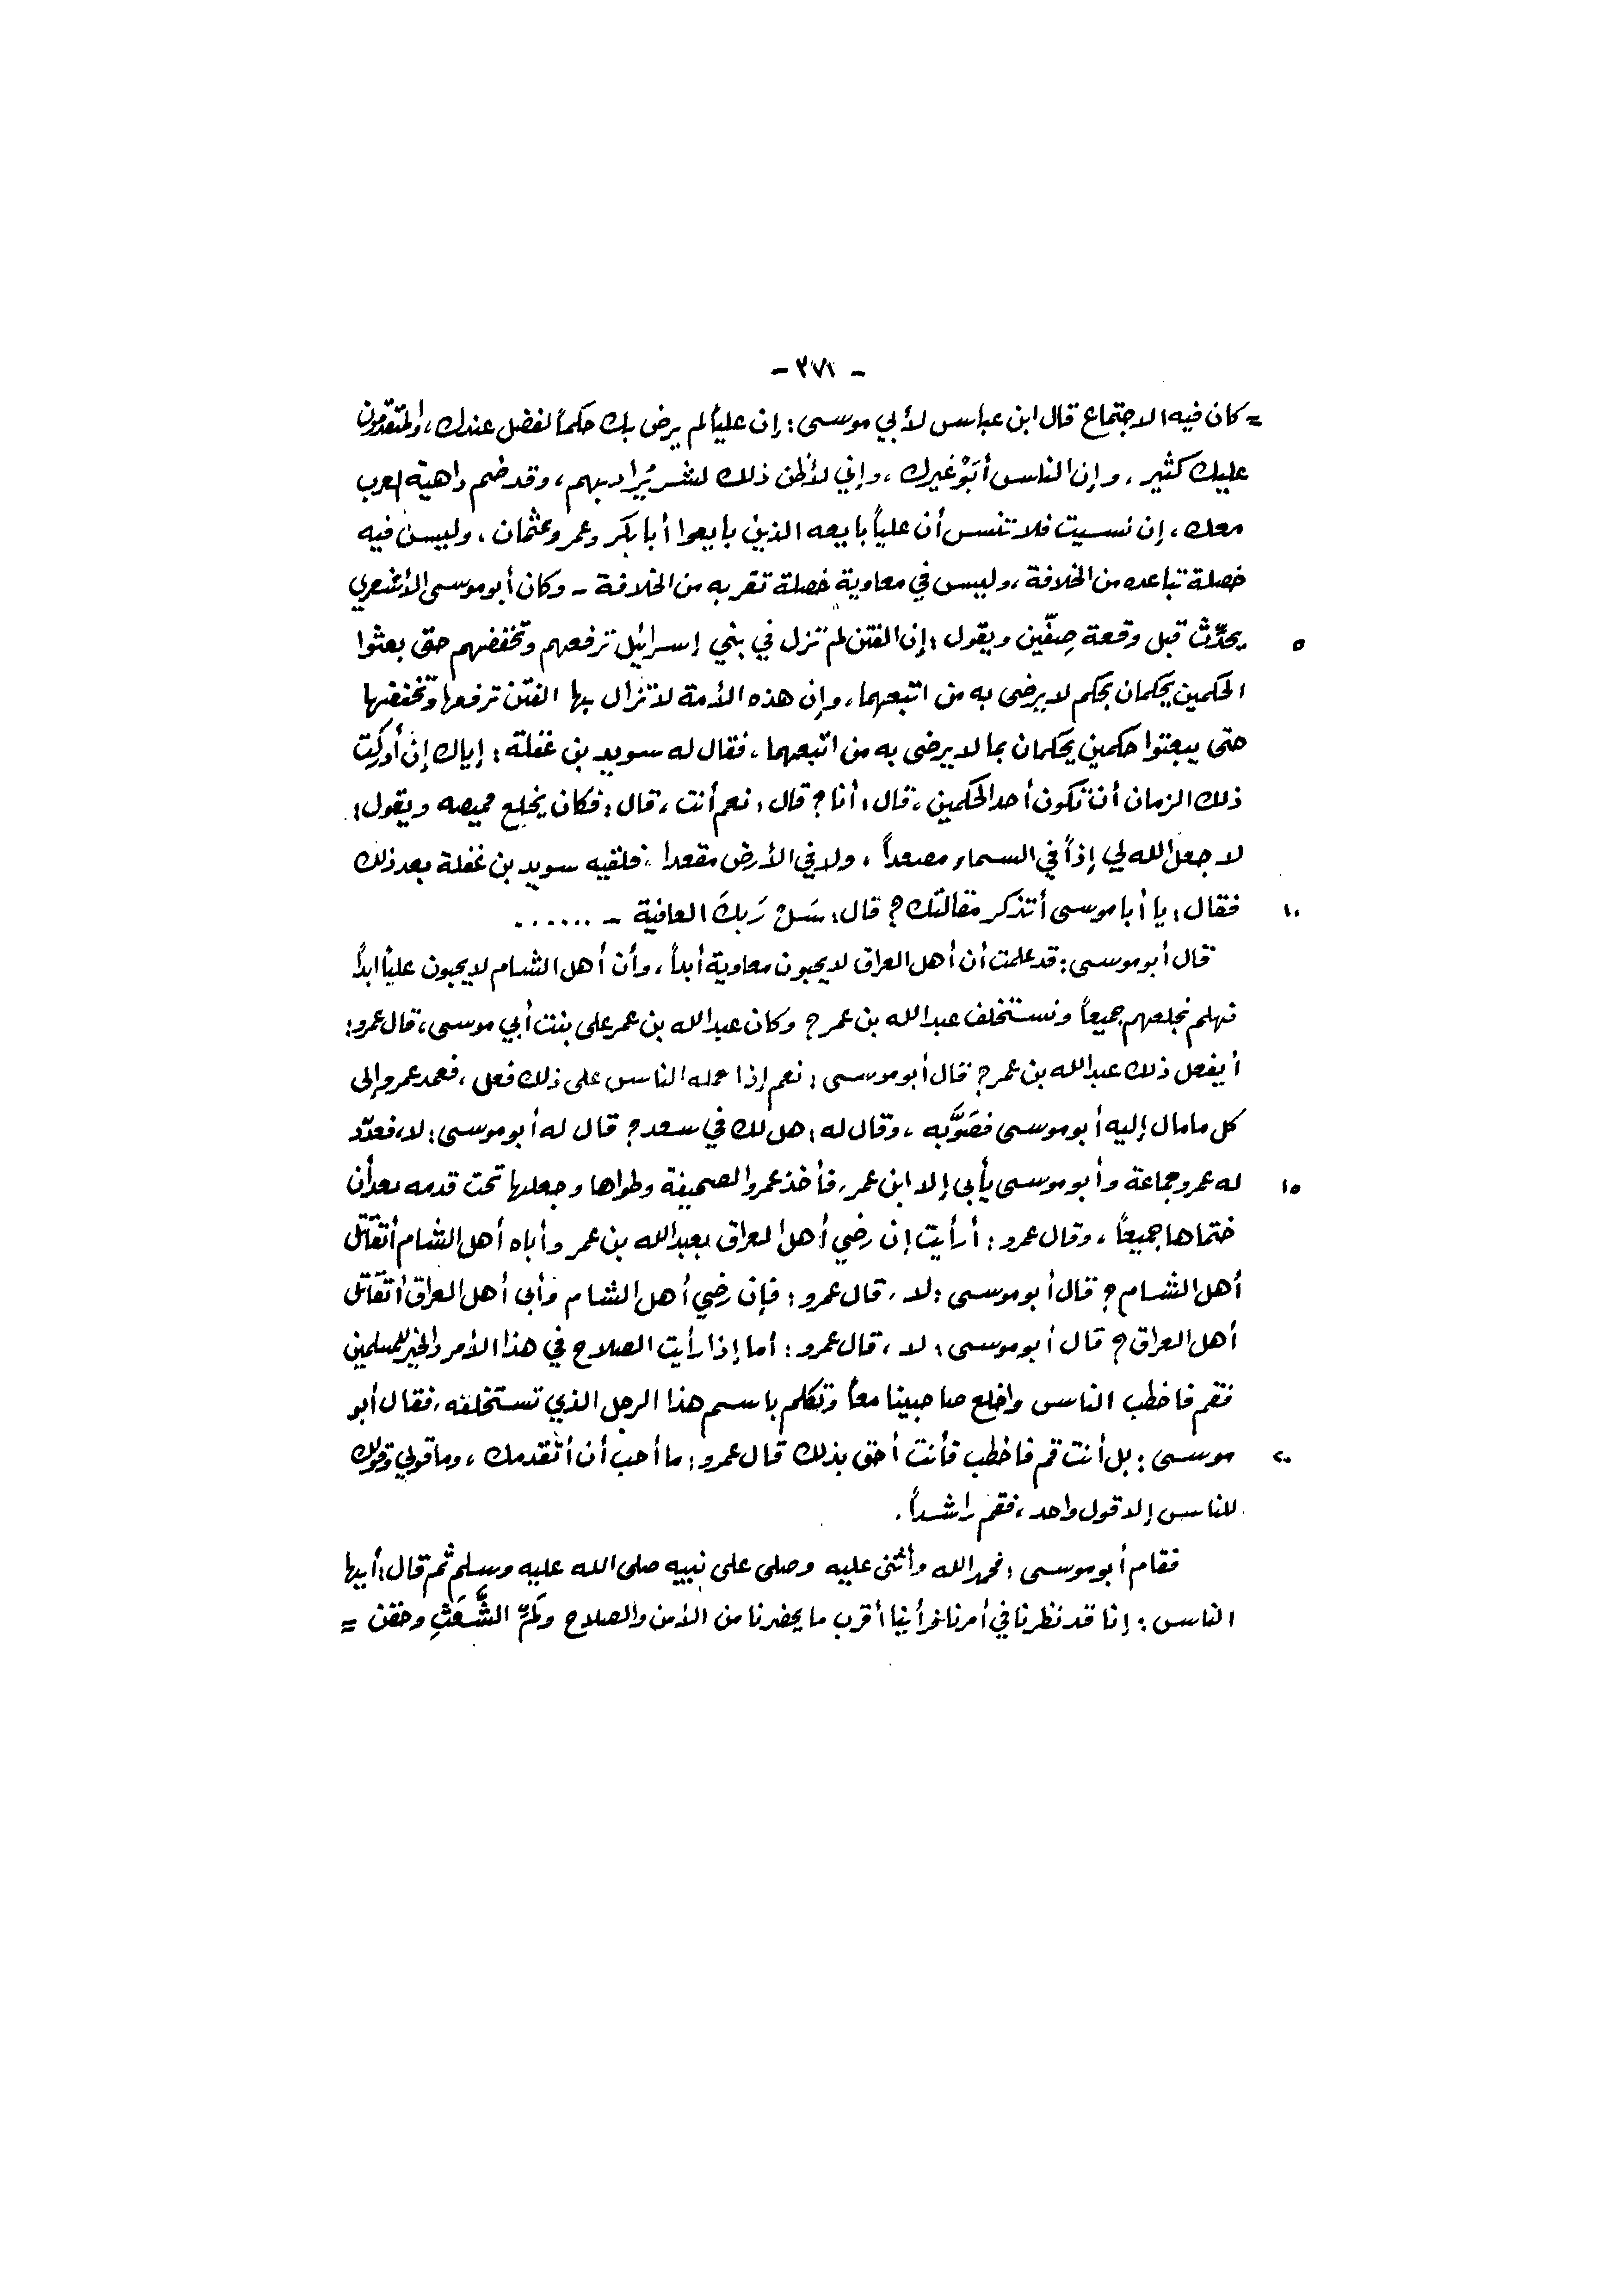 - ٢٧١ -
= كان فيه الاجتماع قال ابن عباس لأبي موسى: إن علياً لم يرض بك حكماً لفضل عندك، والمتقدمون
عليك كثير، وإن الناس أبَوْ غيرك، وإني لأظن ذلك لشر يُراد بهم، وقد ضم داهية العرب
معك، إن نسيت فلا تنس أن علياً بايعه الذين بايعوا أبا بكر وعمر وعثمان، وليس فيه
خصلة تباعده من الخلافة، وليس في معاوية خصلة تقربه من الخلافة - وكان أبو موسى الأشعري
٥ يحدِّث قبل وقعة صِفّين ويقول: إن الفتن لم تزل في بني إسرائيل ترفعهم وتخفضهم حتى بعثوا
الحكمين يحكمان بحكم لا يرضى به من اتبعهما، وإن هذه الأمة لا تزال بها الفتن ترفعها وتخفضها
حتى يبعثوا حكمين يحكمان بما لا يرضى به من اتبعهما، فقال له سويد بن غفلة: إياك إن أدركت
ذلك الزمان أن تكون أحد الحكمين، قال: أنا؟ قال: نعم أنت، قال: فكان يخلع قميصه ويقول:
لا جعل الله لي إذاً في السماء مصعداً، ولا في الأرض مقعداً، فلقيه سويد بن غفلة بعد ذلك
١٠ فقال: يا أبا موسى أتذكر مقالتك؟ قال: سَلْ رَبكَ العافية - ......
قال أبو موسى: قد علمت أن أهل العراق لا يحبون معاوية أبداً، وأن أهل الشام لا يحبون علياً ابداً
فهلم نخلعهم جميعاً ونستخلف عبد الله بن عمر؟ وكان عبد الله بن عمر على بنت أبي موسى، قال عمرو:
أيفعل ذلك عبد الله بن عمر؟ قال أبو موسى: نعم إذا حمله الناس على ذلك فعل، فعمد عمرو إلى
كل ما مال إليه أبو موسى فصَوَّبه، وقال له: هل لك في سعد؟ قال له أبو موسى: لا، فعدّد
١٥ له عمرو جماعة وأبو موسى يأبى إلا ابن عمر، فأخذ عمرو الصحيفة وطواها وجعلها تحت قدمه بعد أن
ختماها جميعاً، وقال عمرو: أرأيت إن رضي أهل العراق بعبد الله بن عمر وأباه أهل الشام أتقاتل
أهل الشام؟ قال أبو موسى: لا، قال عمرو: فإن رضي أهل الشام وأبى أهل العراق أتقاتل
أهل العراق؟ قال أبو موسى: لا، قال عمرو: أما إذا رأيت الصلاح في هذا الأمر والخير للمسلمين
فقم فاخطب الناس واخلع صاحبينا معاً وتكلم باسم هذا الرجل الذي تستخلفه، فقال أبو
٢٠ موسى: بل أنت قم فاخطب فأنت أحق بذلك قال عمرو: ما أحب أن أتقدمك، وما قولي وقولك
للناس إلا قول واحد، فقم راشداً.
فقام أبو موسى: فحمد الله وأثنى عليه وصلى على نبيه صلى الله عليه وسلم ثم قال: أيها
الناس: إنا قد نظرنا في أمرنا فرأينا أقرب ما يحضرنا من الأمن والصلاح ولَمِّ الشَّعَثِ وحقن =